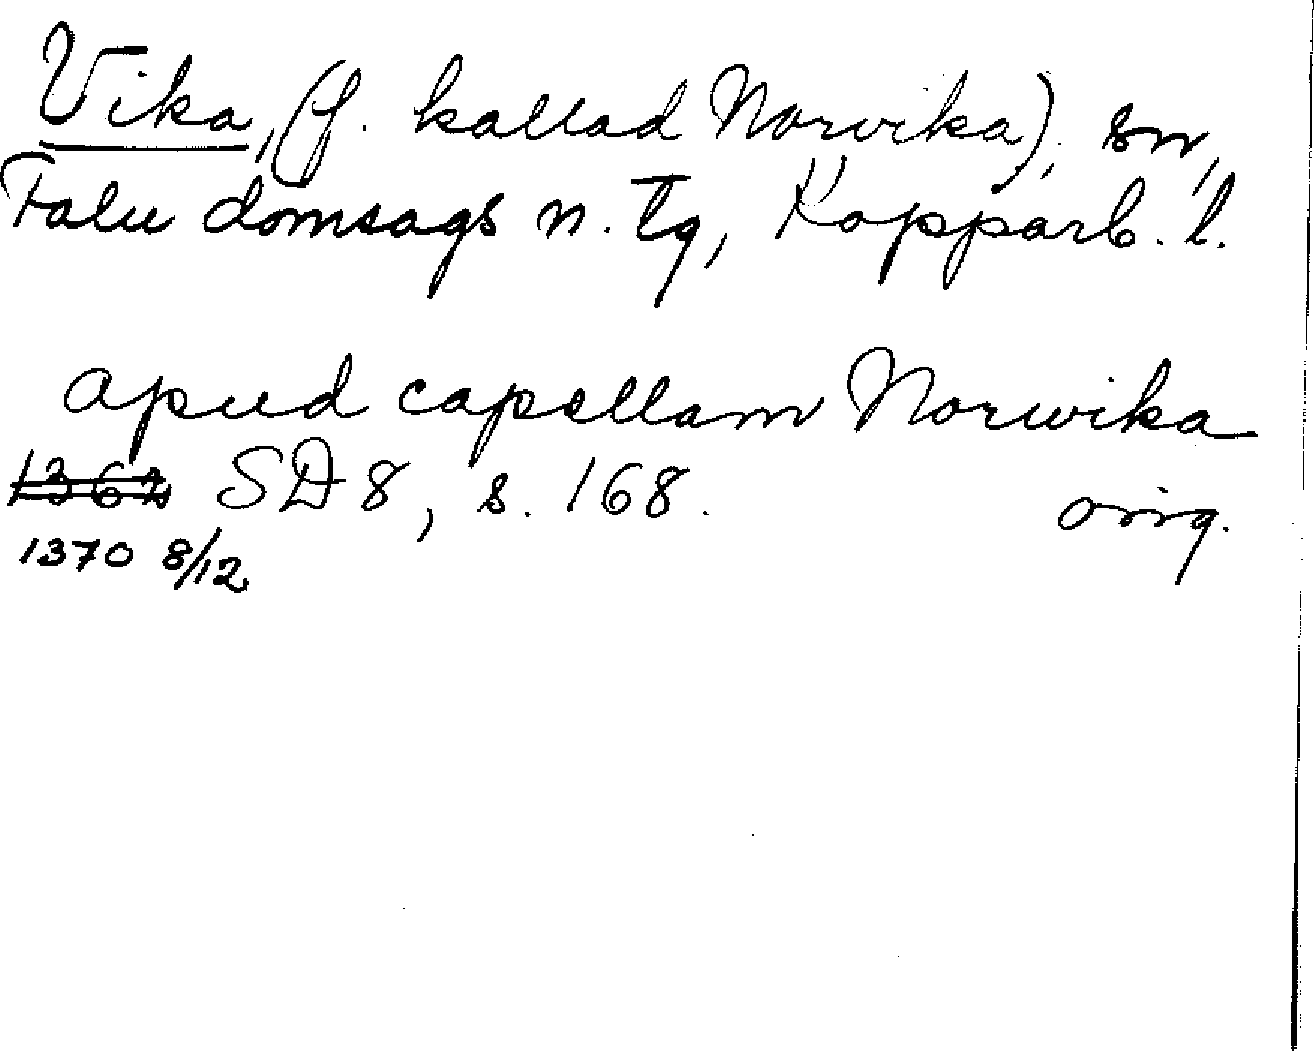 Vika, (f. kallad Norvika), sn,
Falu domsags n. tg, Kopparb. l.
apud capellam Norwika
1362 SD 8, s. 168. orig.
1370 8/12